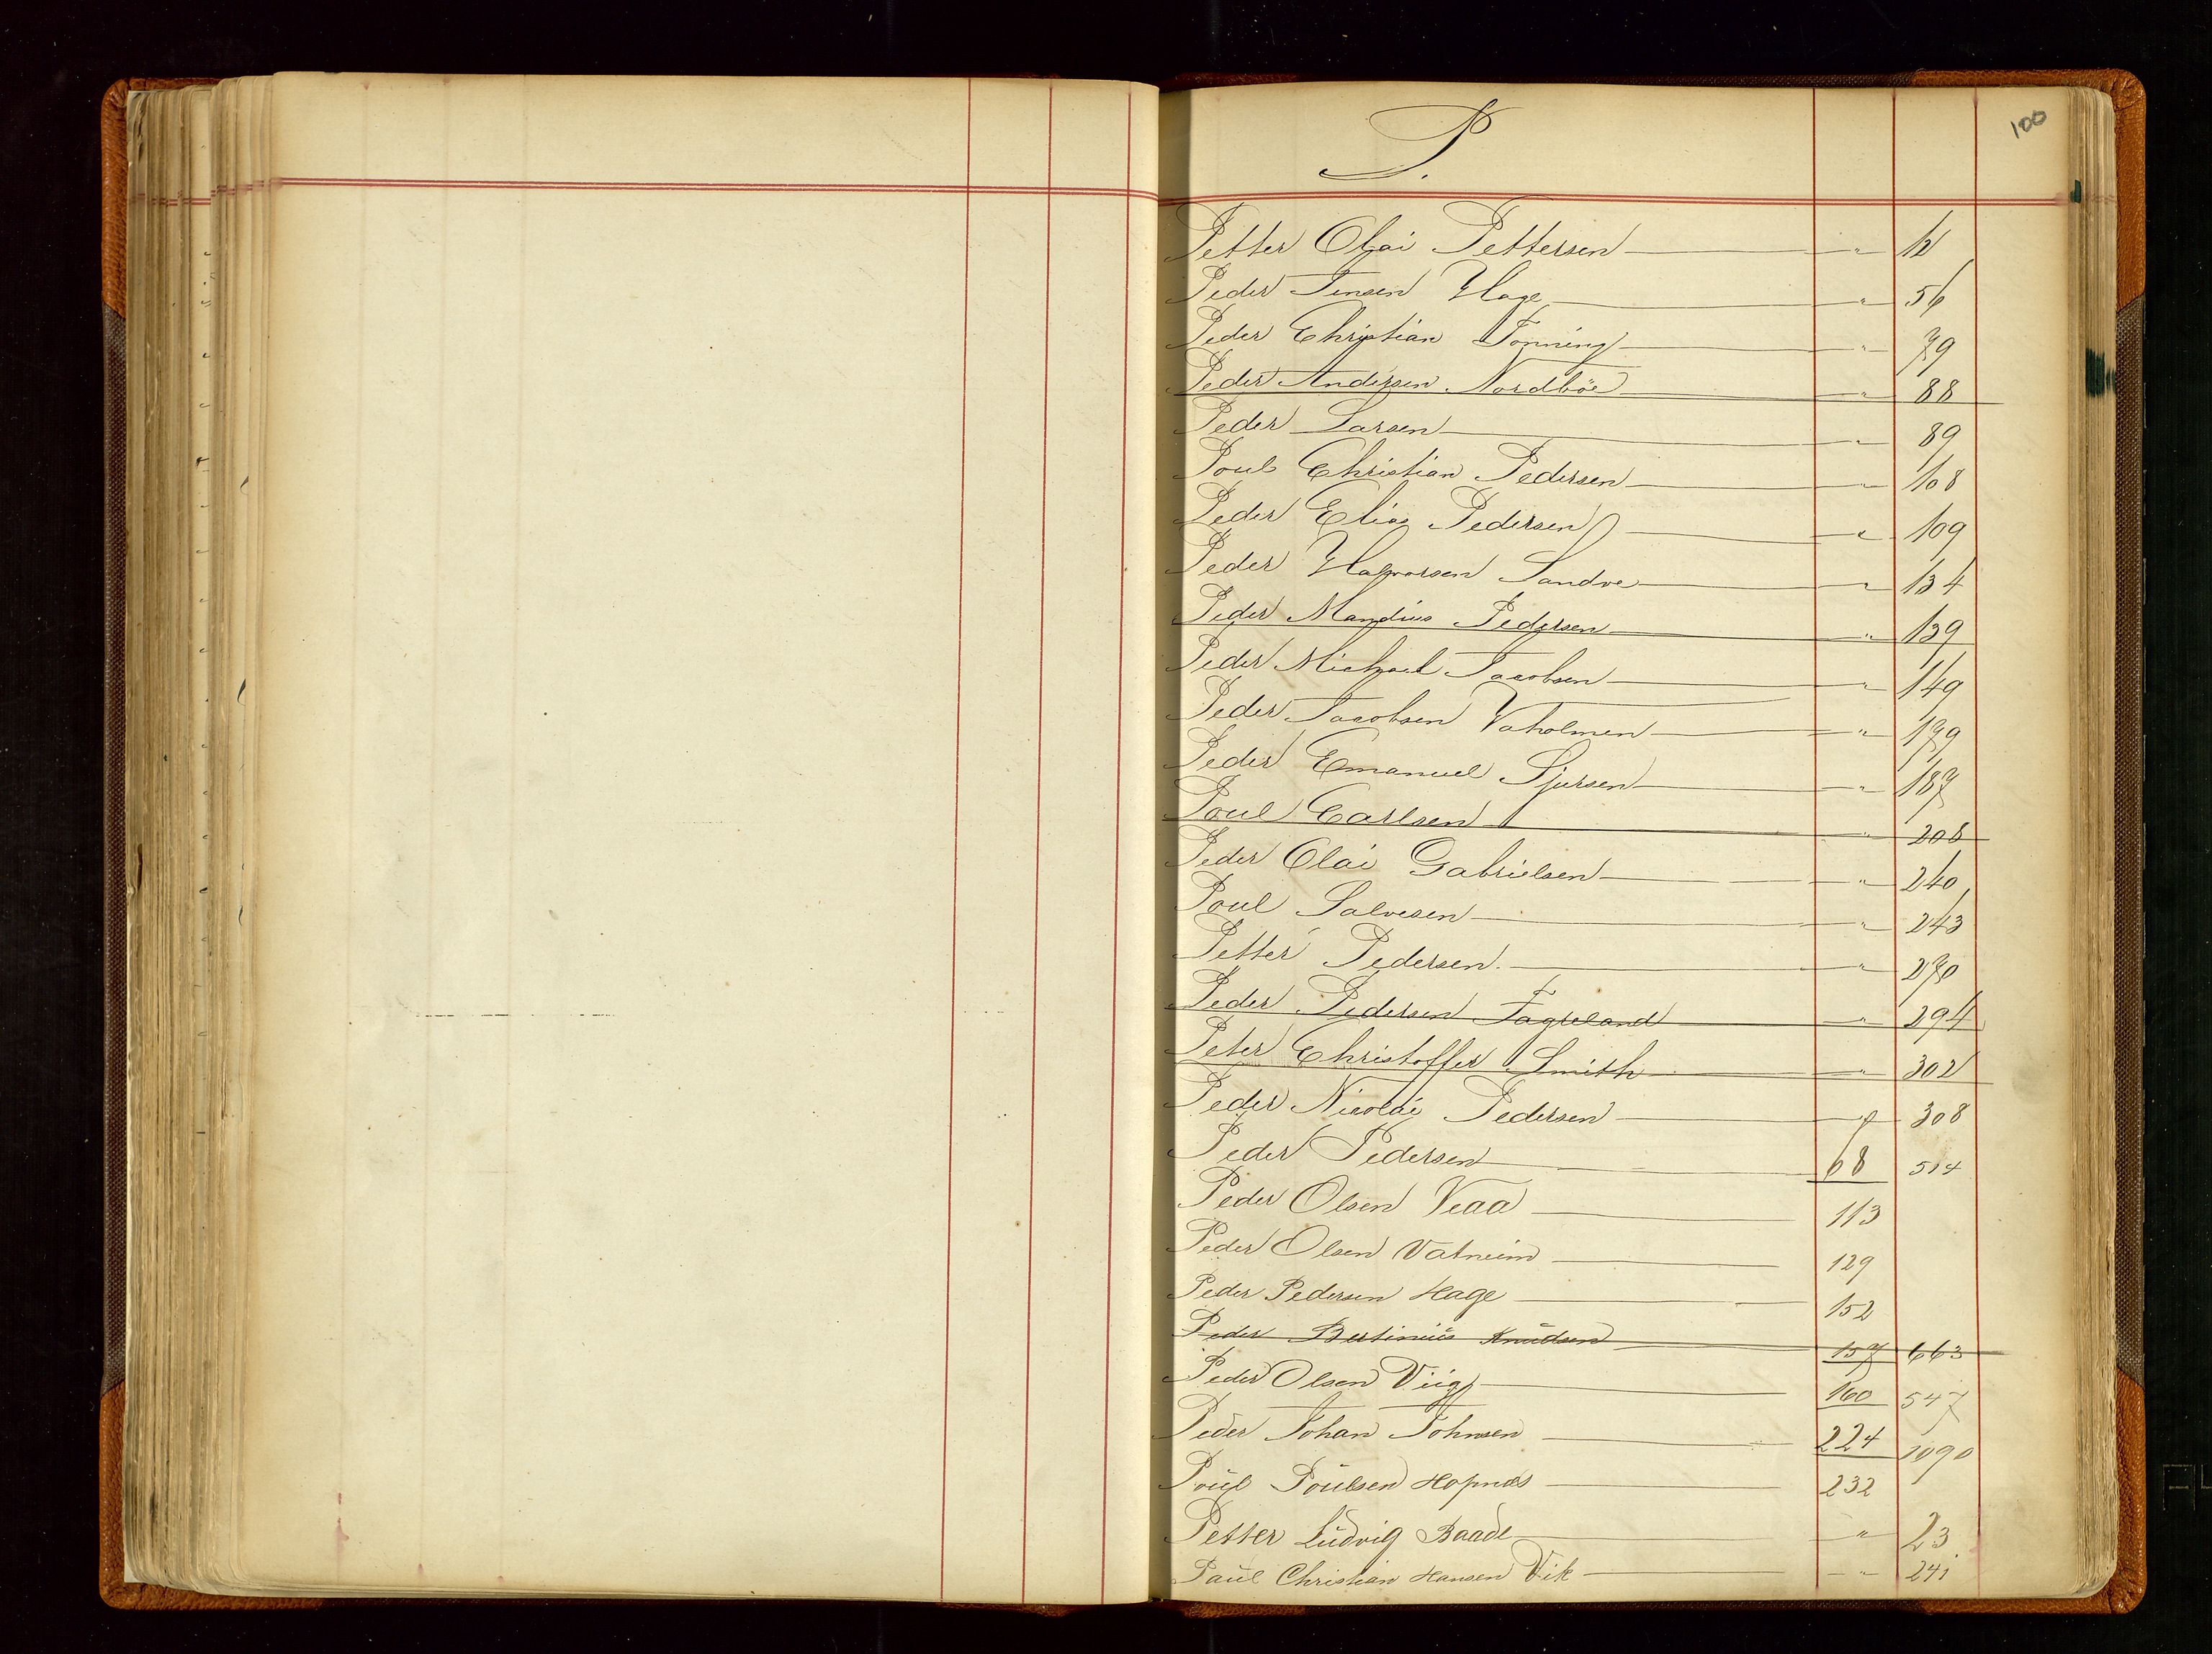 100
P.
Petter Olai Pettersen " 12
Peder Jensen Hage " 56
Peder Christian Tonning " 79
Peder Andersen Nordböe " 88
Peder Larsen " 89
Poul Christian Pedersen " 108
Peder Elias Pedersen " 109
Peder Halvorsen Sandve " 134
Peder Mandius Pedersen " 139
Peder Michael Jacobsen " 149
Peder Jacobsen Vaholmen " 179
Peder Emanuel Sjursen " 187
Poul Carlsen " 208
Peder Olai Gabrielsen " 240
Poul Salvesen " 243
Petter Pedersen " 270
Peder Pedersen Fagreland " 294
Peter Christoffer Smith " 302
Peder Nicolai Pedersen " 308
Peder Pedersen 68 514
Peder Olsen Veaa 113
Peder Olsen Vatneim 129
Peder Pedersen Hage 152
Peder Bertinius Knudsen 157 663
Peder Olsen Viig 160 547
Peder Johan Johnsen 224 1090
Poul Poulsen Hopnæs 232
Petter Ludvig Baade " 23
Paul Christian Hansen Vik " 241